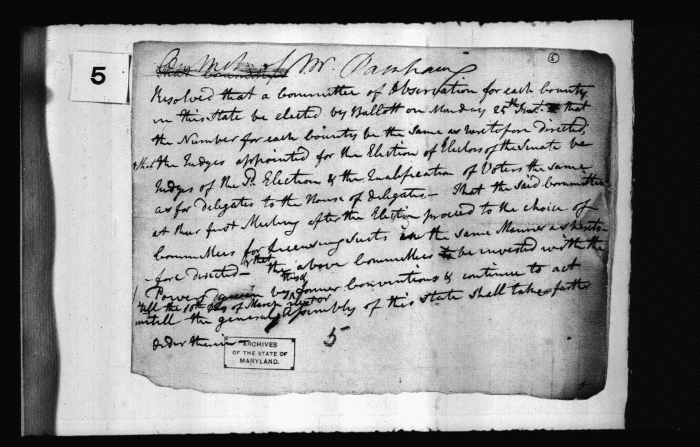 5
On Motion of Mr. Parnham
5
Resolved that a Committee of Observation for each County
in this State be elected by Ballott on Monday 25th Inst. & that
the Number for each County be the same as heretofore directed,
& that the Judges appointed for the Election of Electors of the Senate be
Judges of the sd. Election & the Qualification of Voters the same
as for delegates to the House of delegates — That the said Committees
at their first Meeting after the Election proceed to the choice of
Committees for licensing Suits in the same Manner as hereto-
-fore directed — & that the above Committees be invested with the
Powers given by this & former Conventions & continue to act
till the 10th day of March next or
untill the general Assembly of this State shall take farther
order therein —
5
ARCHIVES
OF THE STATE OF
MARYLAND.